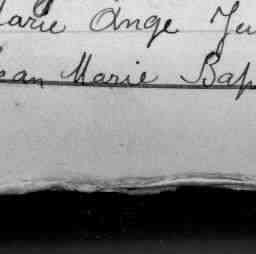 arie Ange Ju
ean Marie Bap